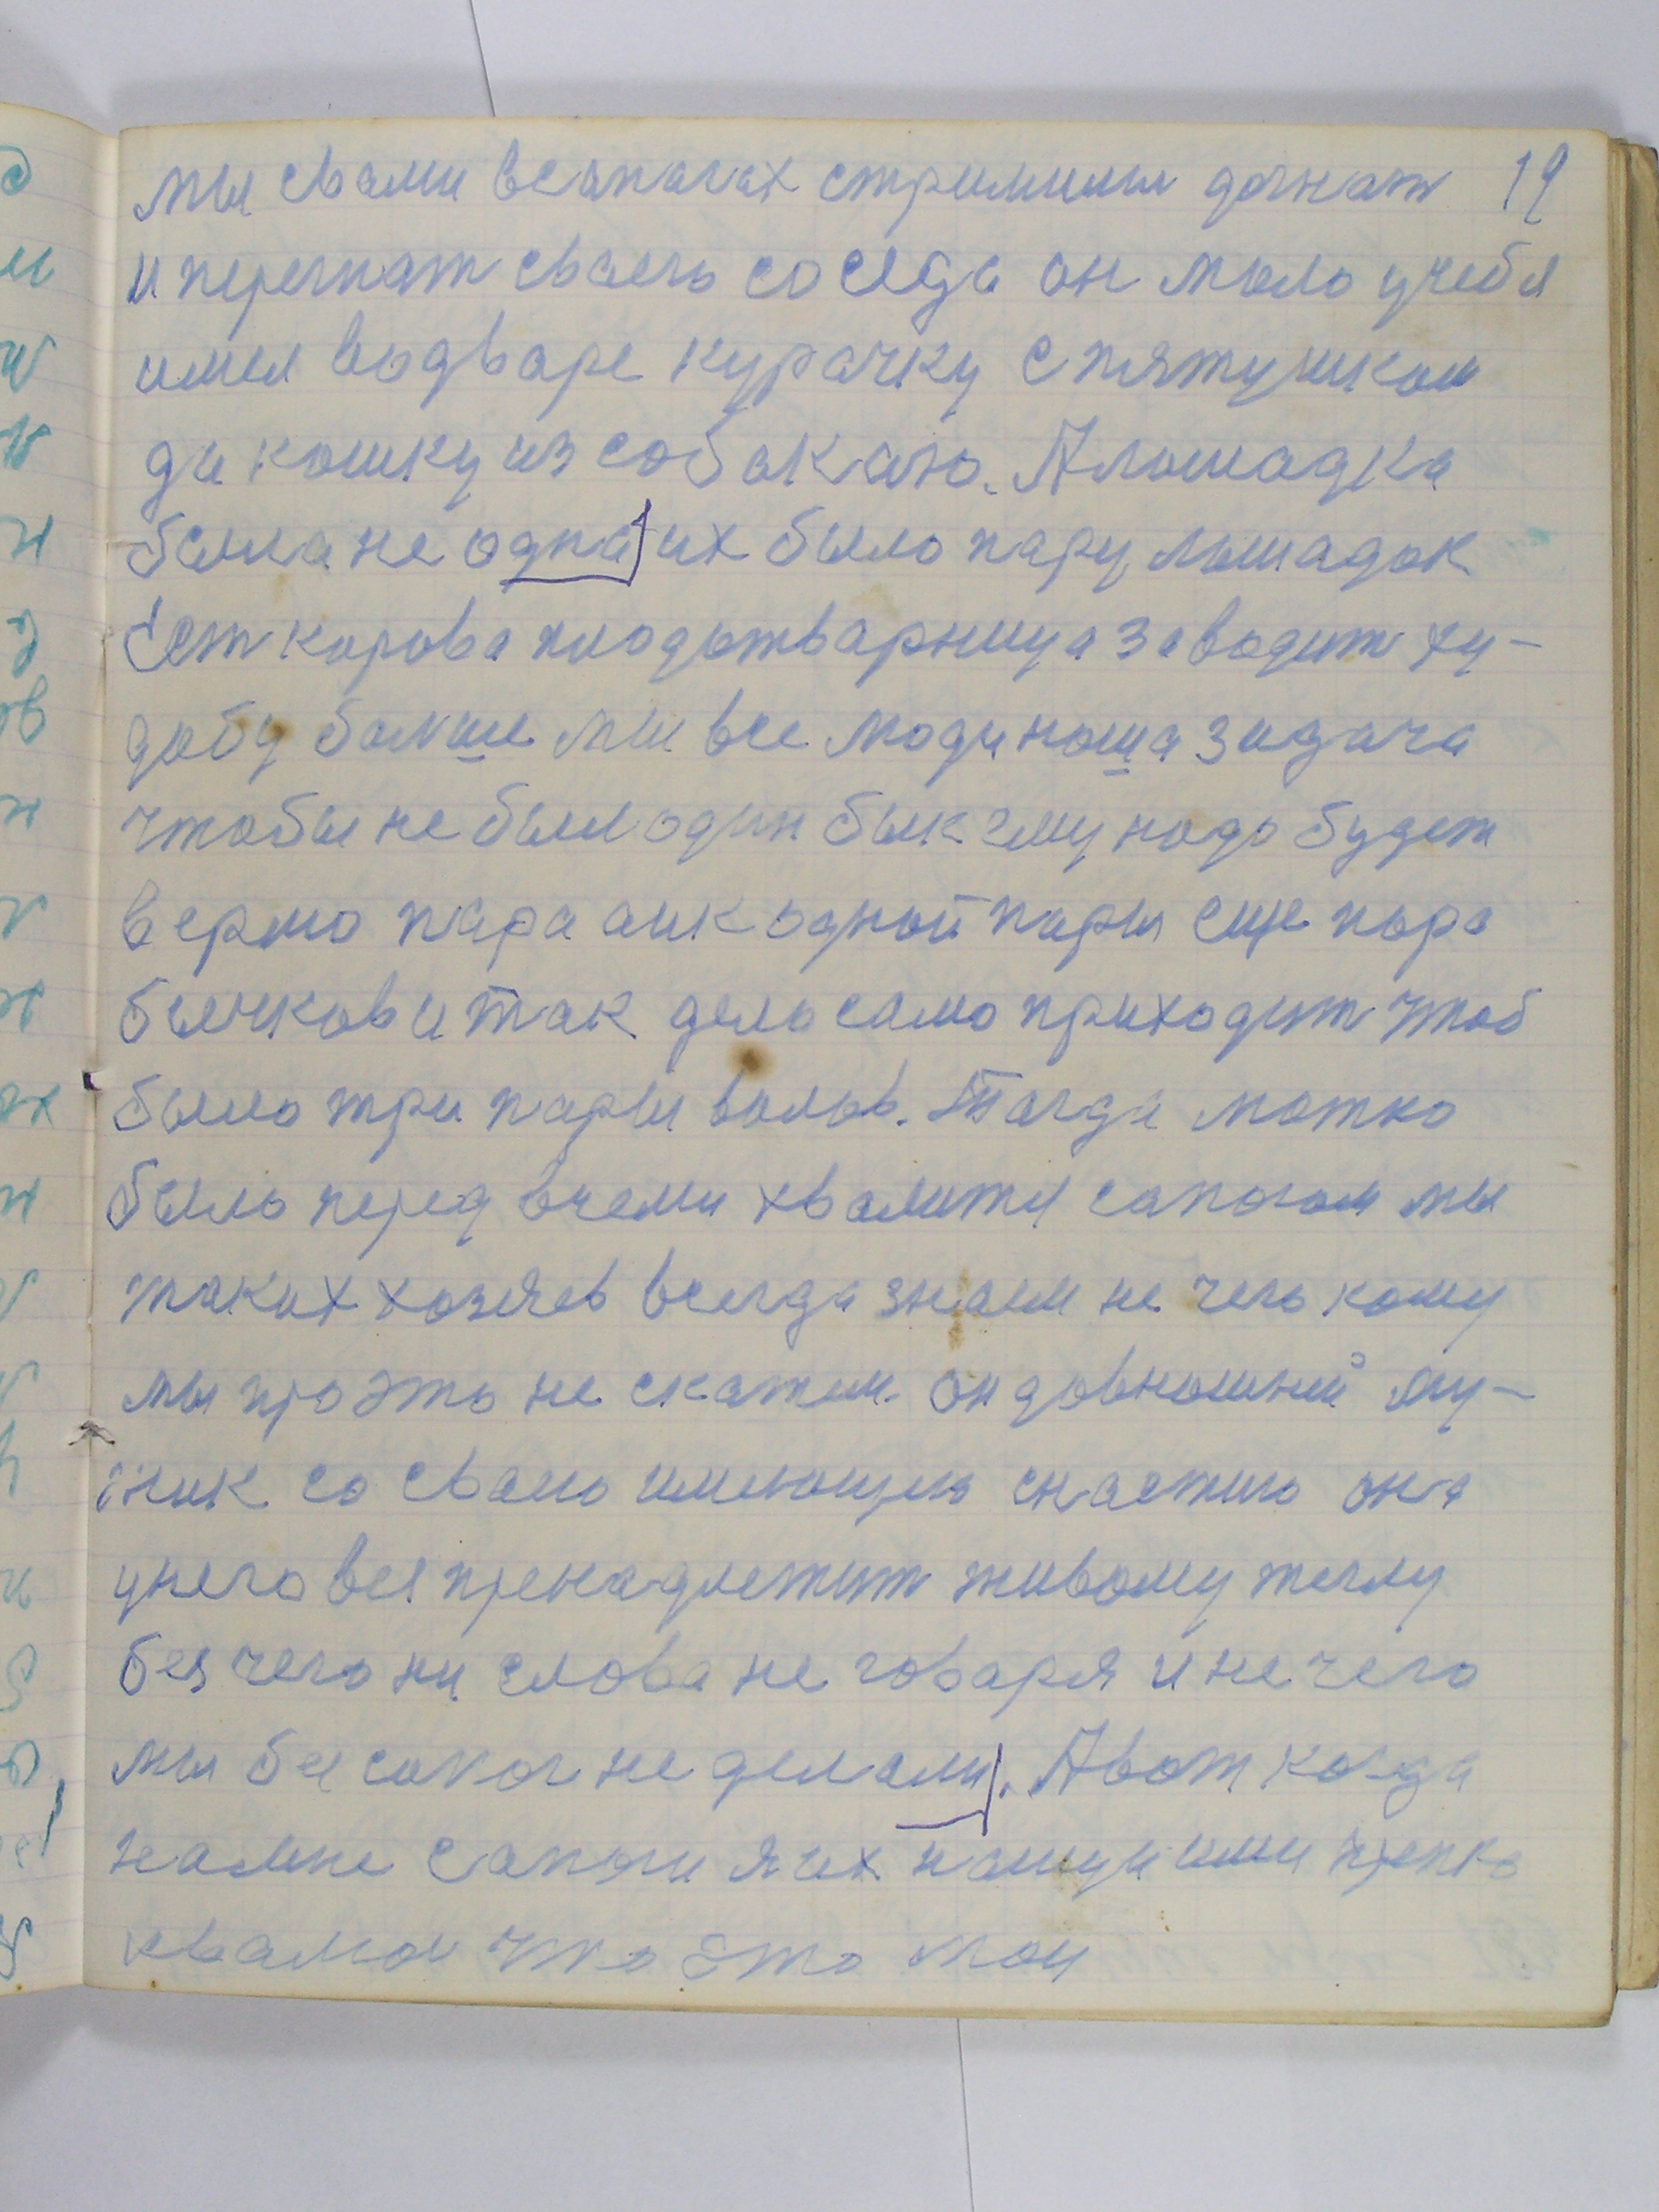 мы свами всапагах стримимы догнат 19
и перегнат сваего соседа он мало учебя
имел водваре курачку с пятушком
да кошку из собакаю. А лошадка
была не одна их было пару лошадок
Ест корова плодотварница заводит ху-
добу болше мы все люди наша задача
чтобы не был один бык ему надо будет
вермо пара аик одной пары еще пара
бычков и так дело само приходит чтоб
было три пары валов. Тагда можно
было перед всеми хвалится сапогам мы
таких хозяев всегда знаем не чего кому
мы про это не скажем. он давношний му-
жик со своею имеющею снастию она
унего вся пренадлежит живому телу
без чего ни слова не говаря и не чего
мы бес сапог не делали. А вот когда
на мне сапоги я их нашу и ими крепко
квалюся что это мои